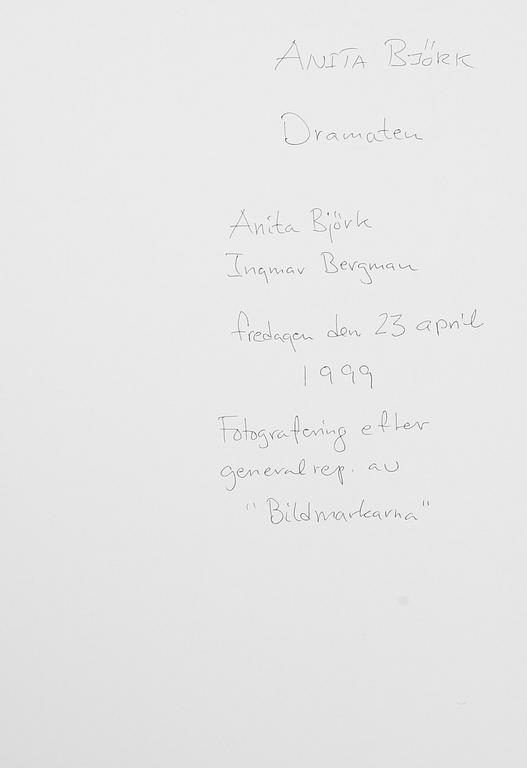 ANITA BJÖRK
Dramaten
Anita Björk
Ingmar Bergman
fredagen den 23 april
1999
Fotografering efter
generalrep. av
"Bildmarkarna"